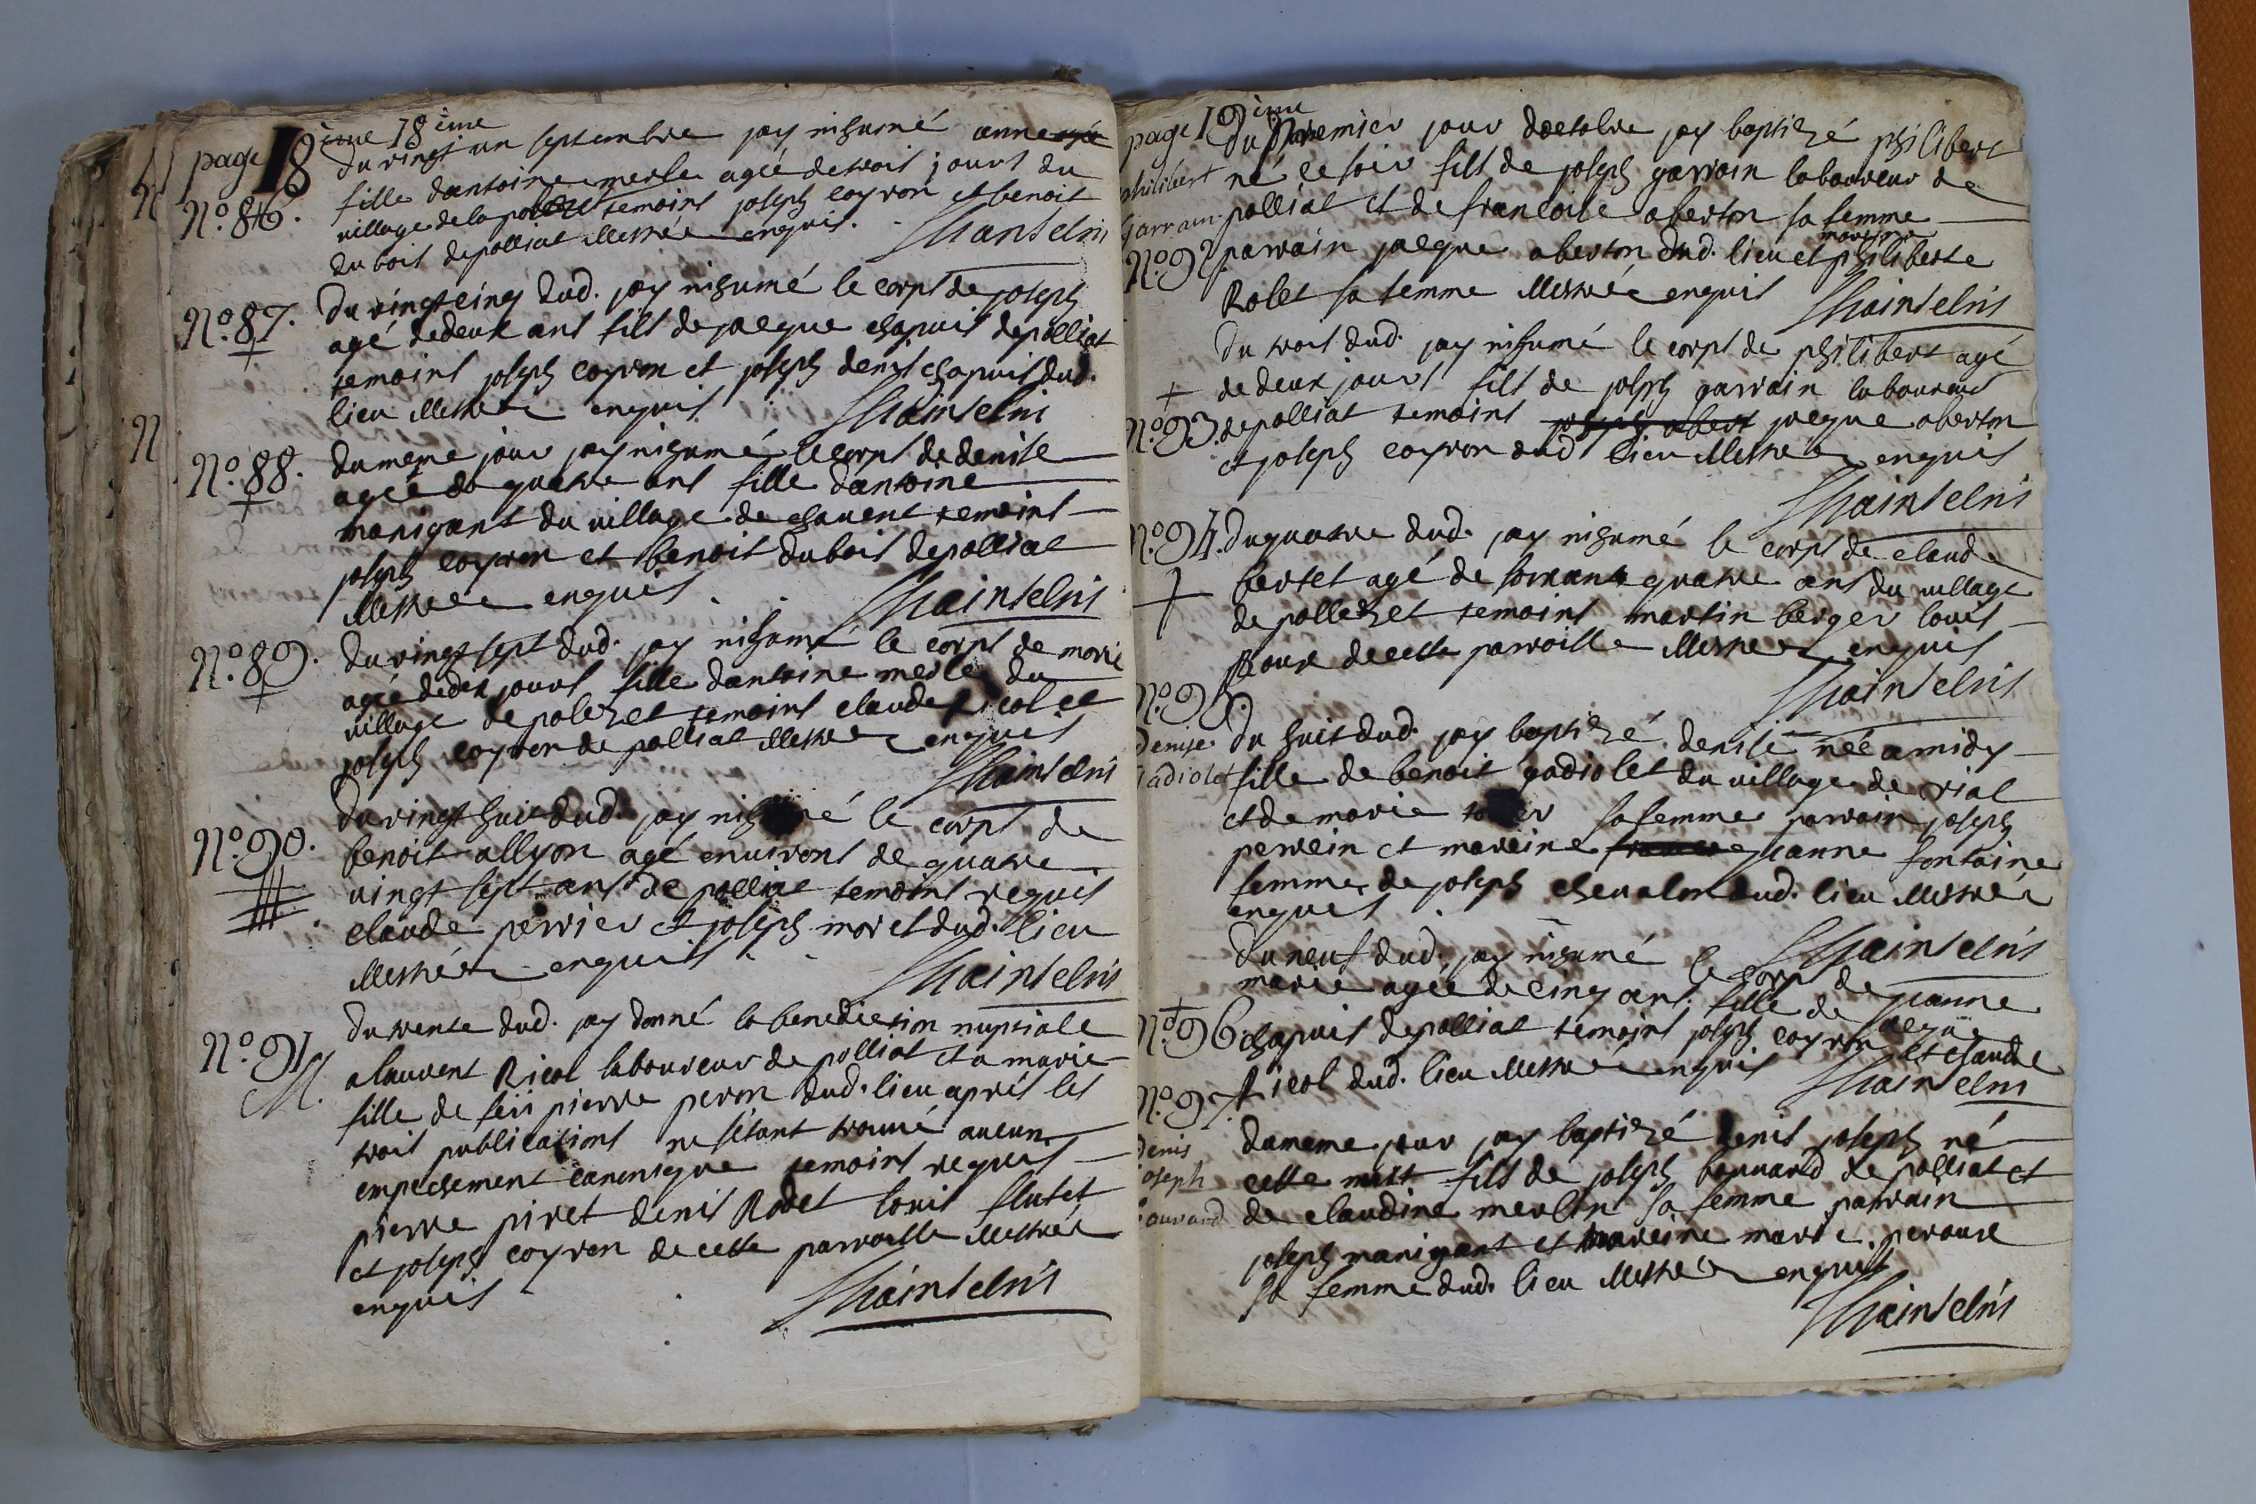 page 18ieme 18ieme
du vingt un septembre jay inhumé anne
fille dantoine merle agée de trois jours du
No. 86.
village de la temoins joseph coyron et benoit
du bois de polliat illettrée enquis.
Chainselris
No. 87.
du vingt cinq dud. jay inhumé le corps de joseph
agé de deux ans fils de jacque chapuis de polliat
temoins joseph coyron et joseph denis chapuis dud.
lieu illettrée enquis
Chainselris
No. 88.
du meme jour jay inhumé le corps de denise
agée de quatre ans fille dantoine
manigant du village de chavent temoins
joseph coyron et benoit dubois de polliat
illettrée enquis
Chainselris
No. 89.
du vingt sept dud. jay inhumé le corps de marie
agée de dex jours fille dantoine merle du
village de polezet temoins claude ricol et
joseph coyron de polliat illettrée enquis
Chainselris
No. 90.
du vingt huit dud. jay inhumé le corps de
benoit allyon agé environs de quatre
vingt sept ans de polliat temoins requis
claude perrier et joseph moret dud. lieu
illettrée enquis
Chainselris
No. 91
M.
du trente dud. jay donné la benediction nuptiale
a laurent Ricol laboureur de polliat et a marie
fille de feu pierre peron dud. lieu aprés les
trois publications ne sétant trouvé aucun
empechement canonique temoins requis
pierre piret denis Rodet louis flutet
et joseph coyron de cette parroisse illettrée
enquis
Chainselris
page 19ieme
du premier jour doctobre jay baptizé philibert
philibert
né ce soir fils de joseph garrain laboureur de
garrain
polliat et de francoise aberton sa femme
No. 92
parrain jacque aberton dud. lieu et mareine philiberte
Rolet sa femme illettrée enquis
Chainselris
du trois dud. jay inhumé le corps de philibert agé
de deux jours fils de joseph garrain laboureur
No. 93.
de polliat temoins joseph abert jacque aberton
et joseph coyron dud lieu illettrée enquis
Chainselris
No. 94.
du quatre dud. jay inhumé le corps de claude
bertet agé de soixante quatre ans du village
de pollezet temoins martin berger louis
poux de cette parroisse illettrée enquis
Chainselris
No. 95.
denise
du huit dud. jay baptizé denise née a midy
gadiolet
fille de benoit gadiolet du village de vial
et de marie sa femme parrain joseph
perrein et mareine jeanne fontaine
femme de joseph chevalon dud. lieu illettrée
enquis
Chainselris
du neuf dud. jay inhumé le corp de
marie agée de cinq ans fille de jeanne
No. 96
chapuis de polliat temoins joseph coyron et claude
ricol dud. lieu illettrée enquis
Chainselris
No. 97
denis
joseph
bouvard
du meme jour jay baptizé denis joseph né
cette nuit fils de joseph bouvard de polliat et
de claudine merlin sa femme parrain
joseph manigant et mareine marie peroux
sa femme dud. lieu illettrée enquis
Chainselris